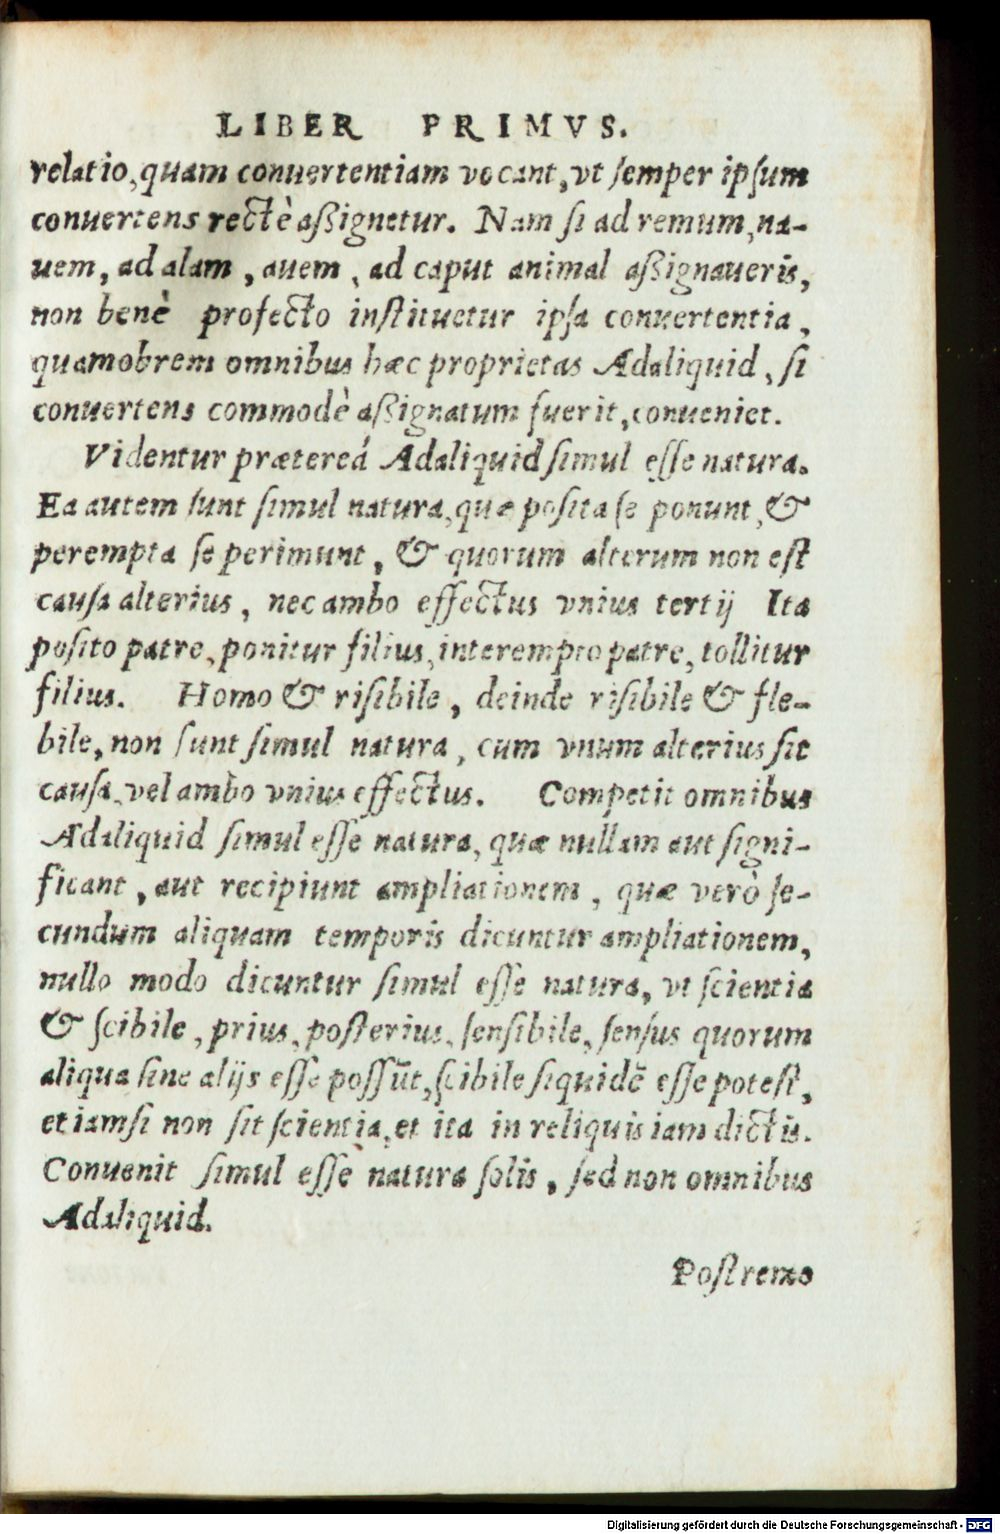 LIBER PRIMVS.
relatio, quam conuertentiam vocant, vt semper ipsum
conuertens rectè aßignetur. Nam si ad remum, na-
uem, ad alam, auem, ad caput animal aßignaueris,
non benè profecto instituetur ipsa conuertentia,
quamobrem omnibus hæc proprietas Adaliquid, si
conuertens commodè aßignatum fuerit, conueniet.
Videntur prætereá Adaliquid simul esse natura.
Ea autem sunt simul natura, quæ posita se ponunt, &
perempta se perimunt, & quorum alterum non est
causa alterius, nec ambo effectus vnius tertij Ita
posito patre, ponitur filius, interempto patre, tollitur
filius. Homo & risibile, deinde risibile & fle-
bile, non sunt simul natura, cum vnum alterius sit
causa, vel ambo vnius effectus. Competit omnibus
Adaliquid simul esse natura, quæ nullam aut signi-
ficant, aut recipiunt ampliationem, quæ verò se-
cundum aliquam temporis dicuntur ampliationem,
nullo modo dicuntur simul esse natura, vt scientia
& scibile, prius, posterius, sensibile, sensus quorum
aliqua sine alijs esse possũt, scibile siquidẽ esse potest,
etiamsi non sit scientia, et ita in reliquis iam dictis.
Conuenit simul esse natura solis, sed non omnibus
Adaliquid.
Postremo
Digitalisierung gefördert durch die Deutsche Forschungsgemeinschaft - DFG